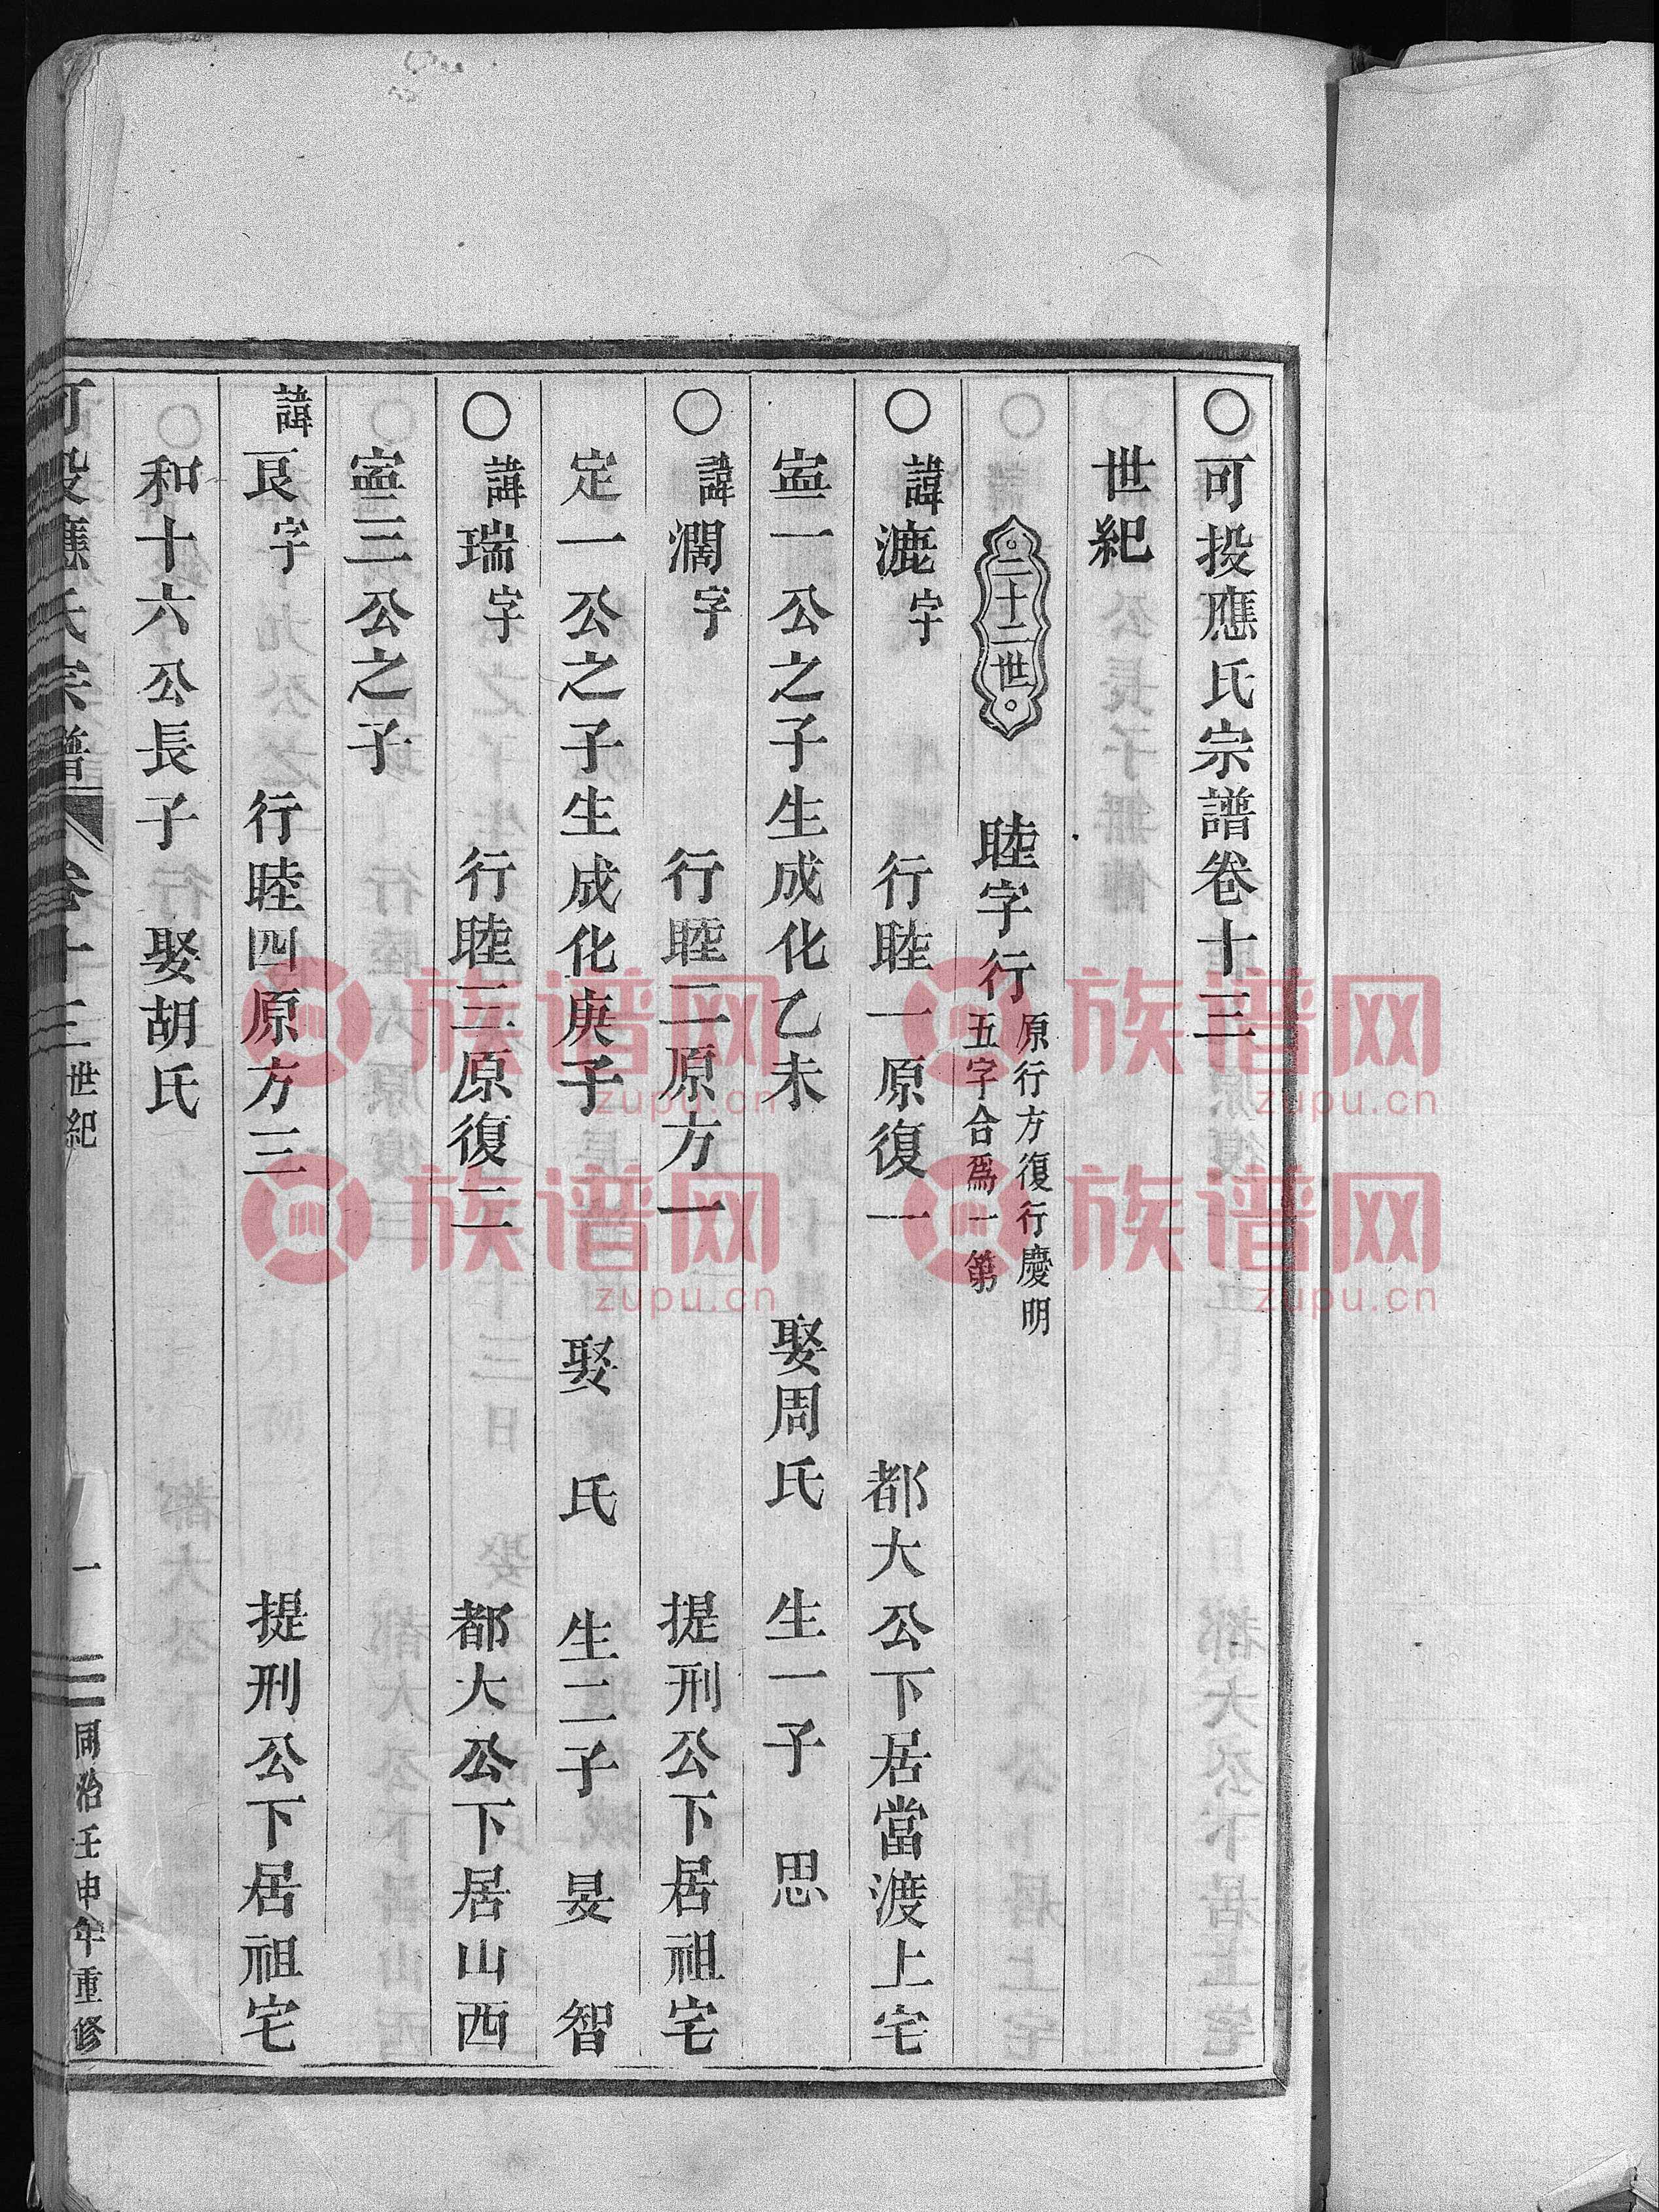 ○可投應氏宗譜卷十三
世紀
二十二世 睦字行 原行方復行慶明
五字合爲一第
○諱漉字 行睦一原復一 都大公下居當渡上宅
寍一公之子生成化乙未 娶周氏 生一子 思
○諱濶字 行睦二原方一 提刑公下居祖宅
定一公之子生成化庚子 娶 氏 生二子 旻 智
○諱瑞字 行睦三原復二 都大公下居山西
寍三公之子
諱艮字 行睦四原方三 提刑公下居祖宅
和十六公長子 娶胡氏
可投應氏宗譜 卷十三 世紀 一 同治壬申年重修
族谱网
zupu.cn
族谱网
zupu.cn
族谱网
zupu.cn
族谱网
zupu.cn